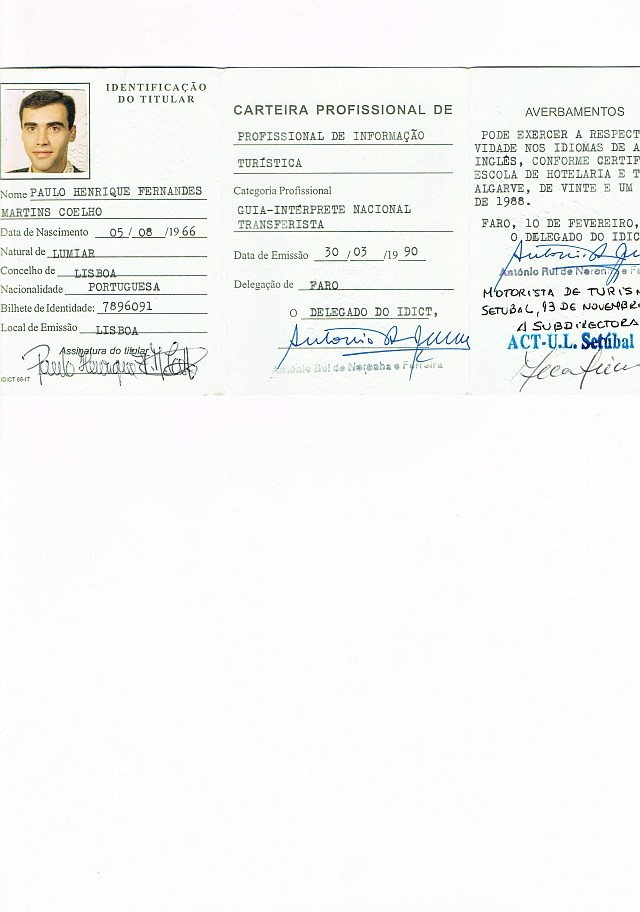 IDENTIFICAÇÃO
DO TITULAR
Nome PAULO HENRIQUE FERNANDES
MARTINS COELHO
Data de Nascimento 05 / 08 /1966
Natural de LUMIAR
Concelho de LISBOA
Nacionalidade PORTUGUESA
Bilhete de Identidade: 7896091
Local de Emissão LISBOA
Assinatura do titular
IDICT 66-IT
CARTEIRA PROFISSIONAL DE
PROFISSIONAL DE INFORMAÇÃO
TURÍSTICA
Categoria Profissional
GUIA-INTÉRPRETE NACIONAL
TRANSFERISTA
Data de Emissão 30 /03 /19 90
Delegação de FARO
O DELEGADO DO IDICT,
António Rui de Noronha e Ferreira
AVERBAMENTOS
PODE EXERCER A RESPECT
VIDADE NOS IDIOMAS DE A
INGLÊS, CONFORME CERTIF
ESCOLA DE HOTELARIA E T
ALGARVE, DE VINTE E UM
DE 1988.
FARO, 10 DE FEVEREIRO,
O DELEGADO DO IDIC
António Rui de Noronha e Fe
MOTORISTA DE TURIS
SETUBAL, 13 DE NOVEMBRO
A SUBDIRECTORA
ACT-U.L. Setúbal